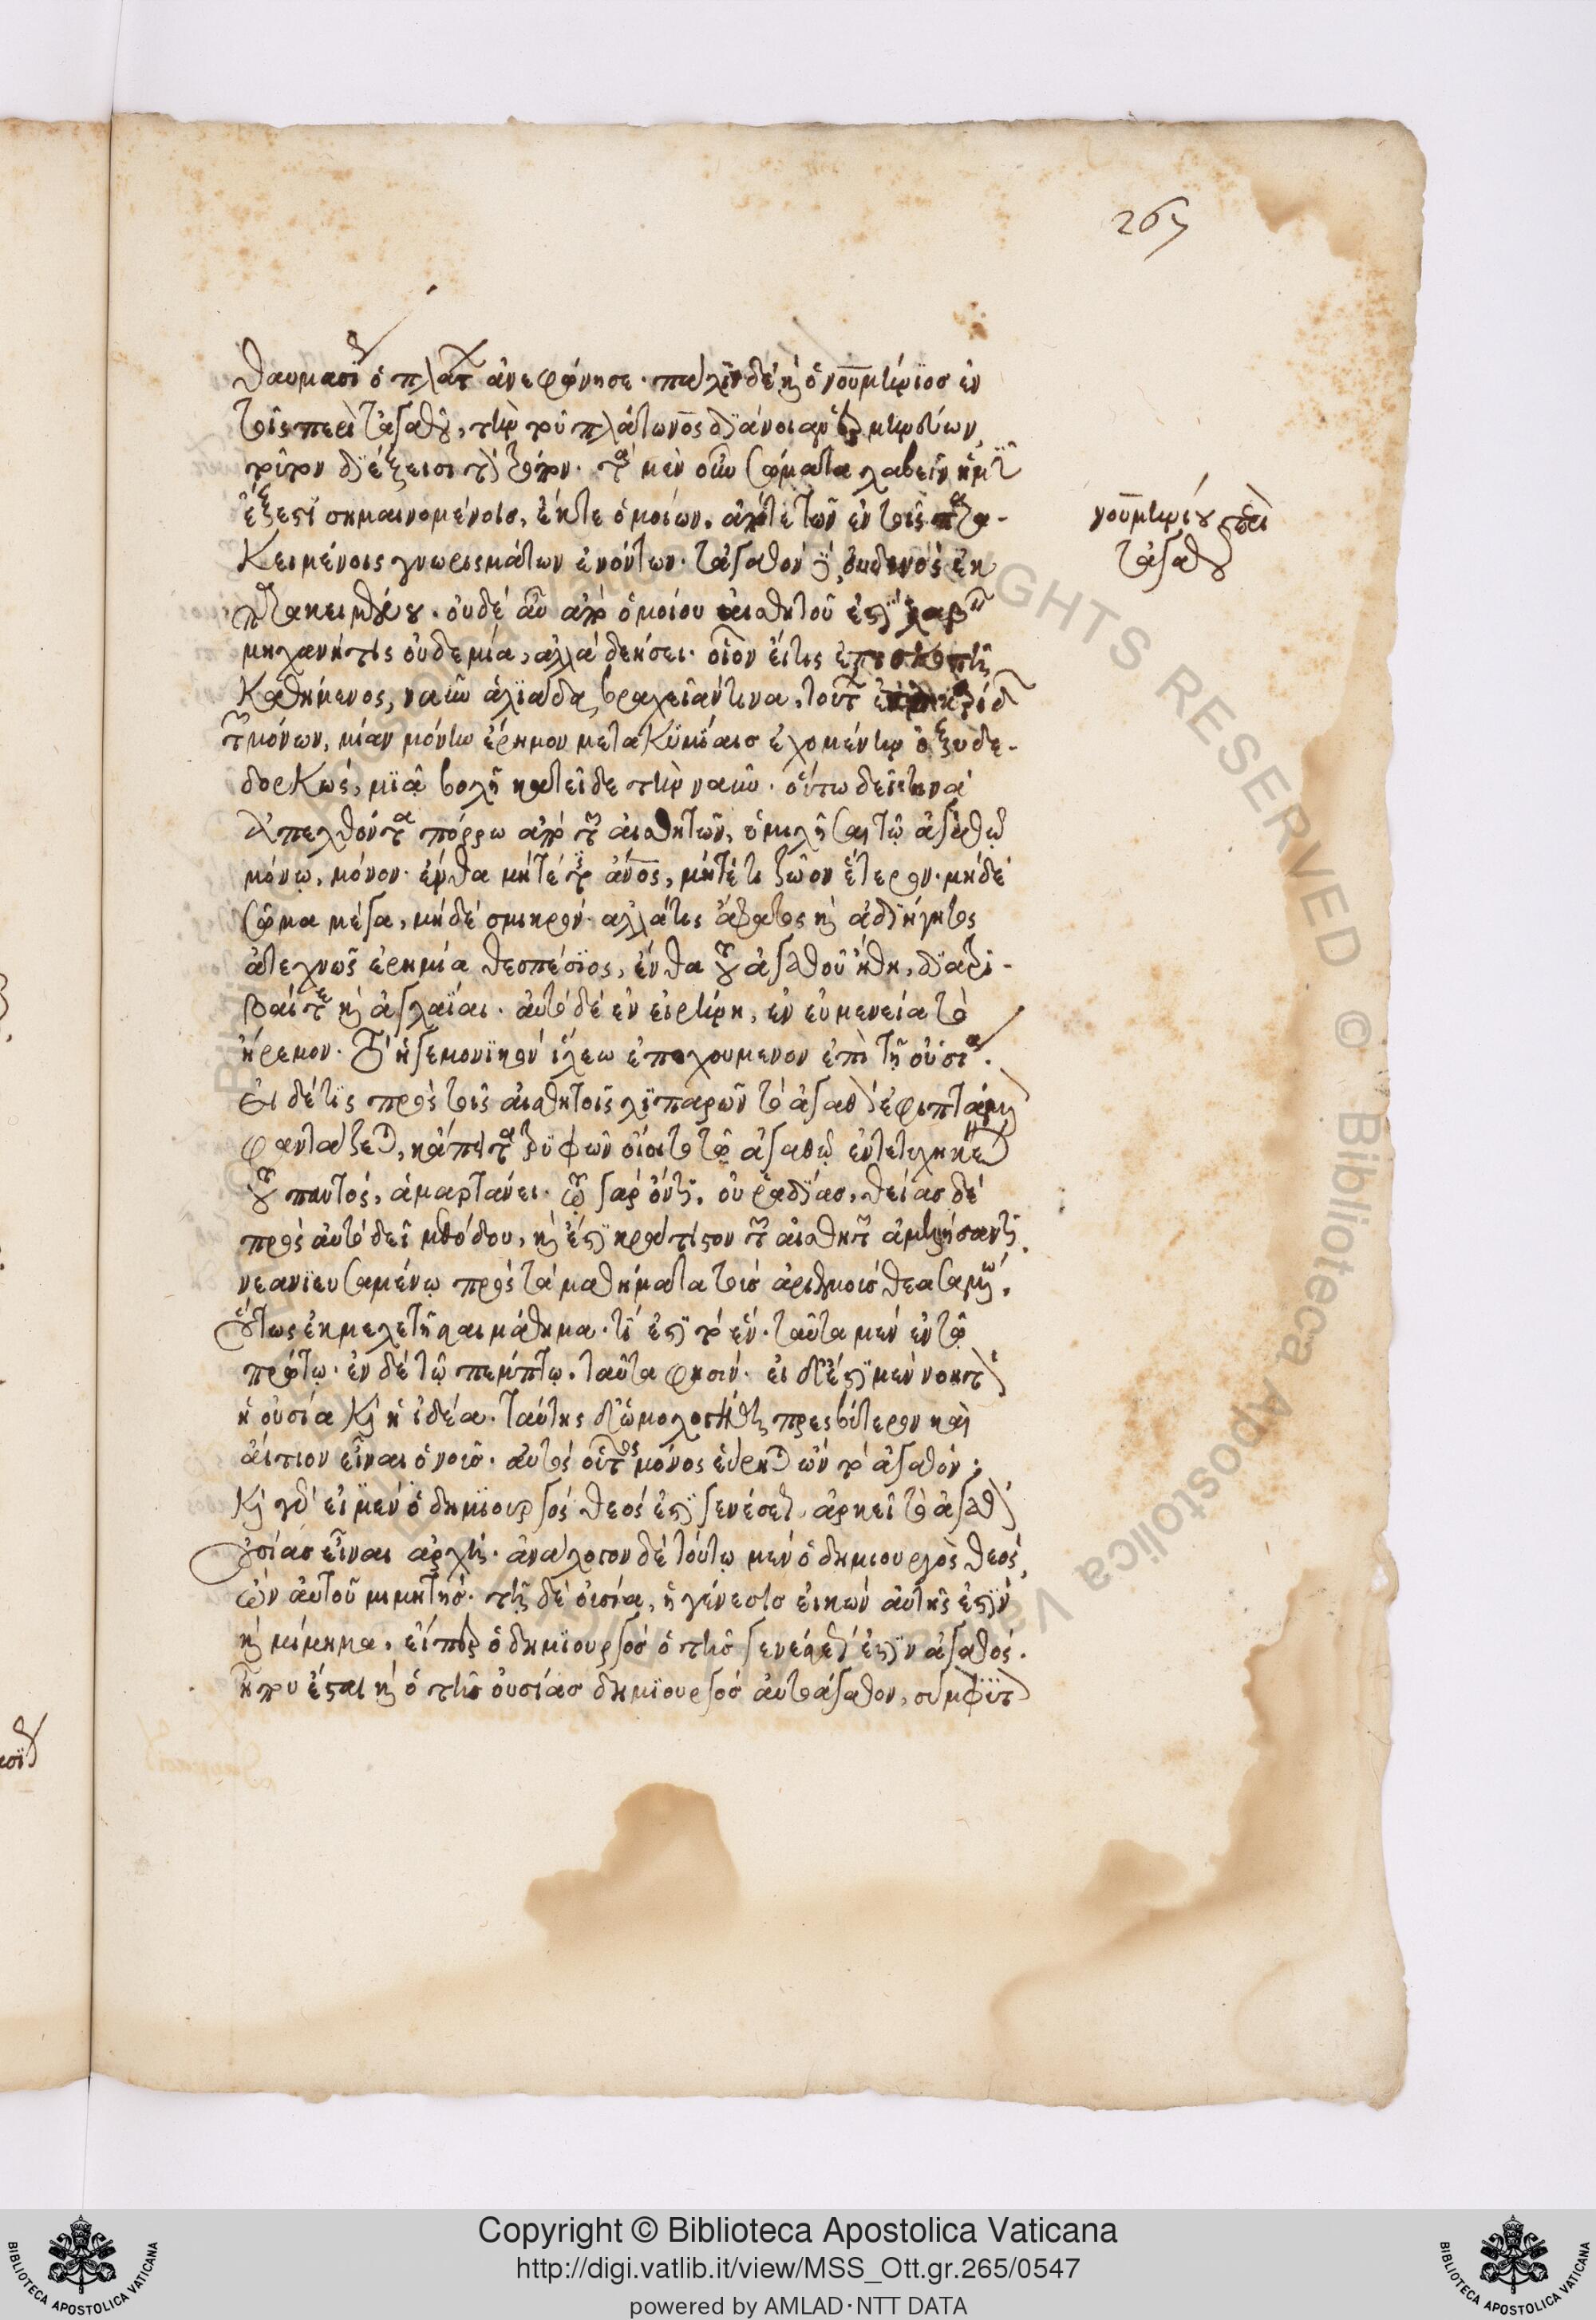 267
θαυμασι ὁ πλατ ἀνεφώνησε. πάλιν δὲ κ ὁ νουμήνιος ἐν
τοῖς περὶ τἀγαθοῦ, τὴν τοῦ πλάτωνος διάνοιαν ἑρμηνεύων
τοῦτον διέξεισι τ τρόπον. τὰ μὲν οὖν σώματα λαβεῖν ἡμῖ
ἔξεστι σημαινομένοις, ἔκ τε ὁμοίων, ἀπό τε τῶν ἐν τοῖς παρα-
κειμένοις γνωρισμάτων ἐνόντων. τἀγαθὸν δ, οὐδενὸς ἐκ
παρακειμένου. οὐδὲ αὖ ἀπὸ ὁμοίου αἰσθητοῦ ἐστὶ λαβ
μηχανή τις οὐδεμία, ἀλλὰ δεήσει. οἷον εἴ τις ἐπὶ σκοπῇ
καθήμενος, ναῦν ἁλιάδα βραχεῖάν τινα, τουτ
τ μόνων, μίαν μόνην ἔρημον μετακυμίαις ἐχομένην ὀξὺ δε-
δορκὼς, μιᾷ βολῇ κατεῖδε τὴν ναῦν. οὕτω δεῖ τινα
ἀπελθόντα πόρρω ἀπὸ τ αἰσθητῶν, ὁμιλῆσαι τῷ ἀγαθῷ
μόνῳ, μόνον. ἔνθα μήτέ τ ἄνος, μήτέ τι ζῶον ἕτερον. μηδὲ
σῶμα μέγα, μηδὲ σμικρόν. ἀλλά τις ἄφατος κ ἀδιήγητος
ἀτεχνῶς ἐρημία θεσπέσιος, ἔνθα τοῦ ἀγαθοῦ ἤθη, διατρι-
βαί τε κ ἀγλαΐαι. αὐτὸ δὲ ἐν εἰρήνη, ἐν εὐμενεία τὸ
ἤρεμον. τὸ ἡγεμονικὸν ἵλεω ἐποχουμενον ἐπὶ τῇ οὐσία.
Εἰ δέ τις πρὸς τοῖς αἰσθητοῖς λιπαρῶν τὸ ἀγαθ ἐφιπτάμ
φαντάζε, κἄπειτα τρυφῶν οἴοιτο τῷ ἀγαθῷ ἐντετυχηκέ
τοῦ παντὸς, ἁμαρτάνει. τῷ γὰρ ὄντι, οὐ ῥαδίας, θείας δὲ
πρὸς αὐτὸ δεῖ μθόδου, κ ἔστι κράτιστον τ αἰσθητ ἀμελήσαντι
νεανιευσαμένῳ πρὸς τὰ μαθήματα τοὺς ἀριθμοὺς θεασαμ.
οὕτως ἐκμελετῆσαι μάθημα. τί ἐστι τὸ ἕν. ταῦτα μὲν ἐν τῷ
πρώτῳ. ἐν δὲ τῷ πέμπτῳ, ταῦτα φησίν. εἰ δ ἐστὶ μὲν νοητ
ἡ οὐσία κ ἡ ἰδέα. ταύτης δ ὡμολογήθη πρεσβύτερον καὶ
αἴτιον εἶναι ὁ νοῦς. αὐτὸς οὗτος μόνος εὕρη ὢν τὸ ἀγαθόν;
κ γὰρ εἰ μὲν ὁ δημιουργὸς θεός ἐστι γενέσε, ἀρκεῖ τὸ ἀγαθ
οὐσίας εἶναι ἀρχή. ἀνάλογον δὲ τούτῳ μὲν ὁ δημιουργὸς θεὸς,
ὢν αὐτοῦ μιμητής. τῇ δὲ οὐσία, ἡ γένεσις εἰκὼν αὐτῆς ἐστὶν
κ μίμημα. εἴπερ ὁ δημιουργὸς ὁ τῆς γενέσε ἐστὶν ἀγαθός.
ἦπου ἔσται κ ὁ τῆς οὐσίας δημιουργὸς αὐτοάγαθον, σύμφυτ
νουμηνίου περὶ
τἀγαθοῦ
Copyright © Biblioteca Apostolica Vaticana
http://digi.vatlib.it/view/MSS_Ott.gr.265/0547
powered by AMLAD·NTT DATA
BIBLIOTECA APOSTOLICA VATICANA
BIBLIOTECA APOSTOLICA VATICANA